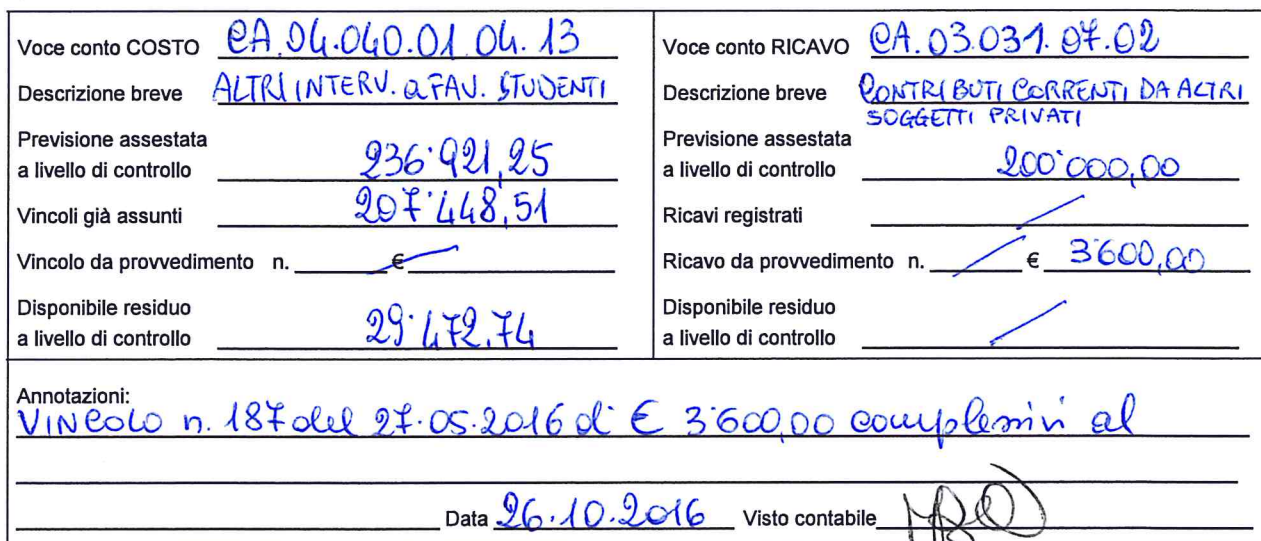 Voce conto COSTO CA.04.040.01.04.13
Descrizione breve ALTRI INTERV. a FAV. STUDENTI
Previsione assestata
a livello di controllo 236'921,25
Vincoli già assunti 207'448,51
Vincolo da provvedimento n. €
Disponibile residuo
a livello di controllo 29'472,74
Voce conto RICAVO CA.03.031.07.02
Descrizione breve CONTRIBUTI CORRENTI DA ALTRI
SOGGETTI PRIVATI
Previsione assestata
a livello di controllo 200'000,00
Ricavi registrati
Ricavo da provvedimento n. € 3'600,00
Disponibile residuo
a livello di controllo
Annotazioni:
VINCOLO n. 187 del 27.05.2016 di € 3'600,00 complessivi al
Data 26.10.2016 Visto contabile